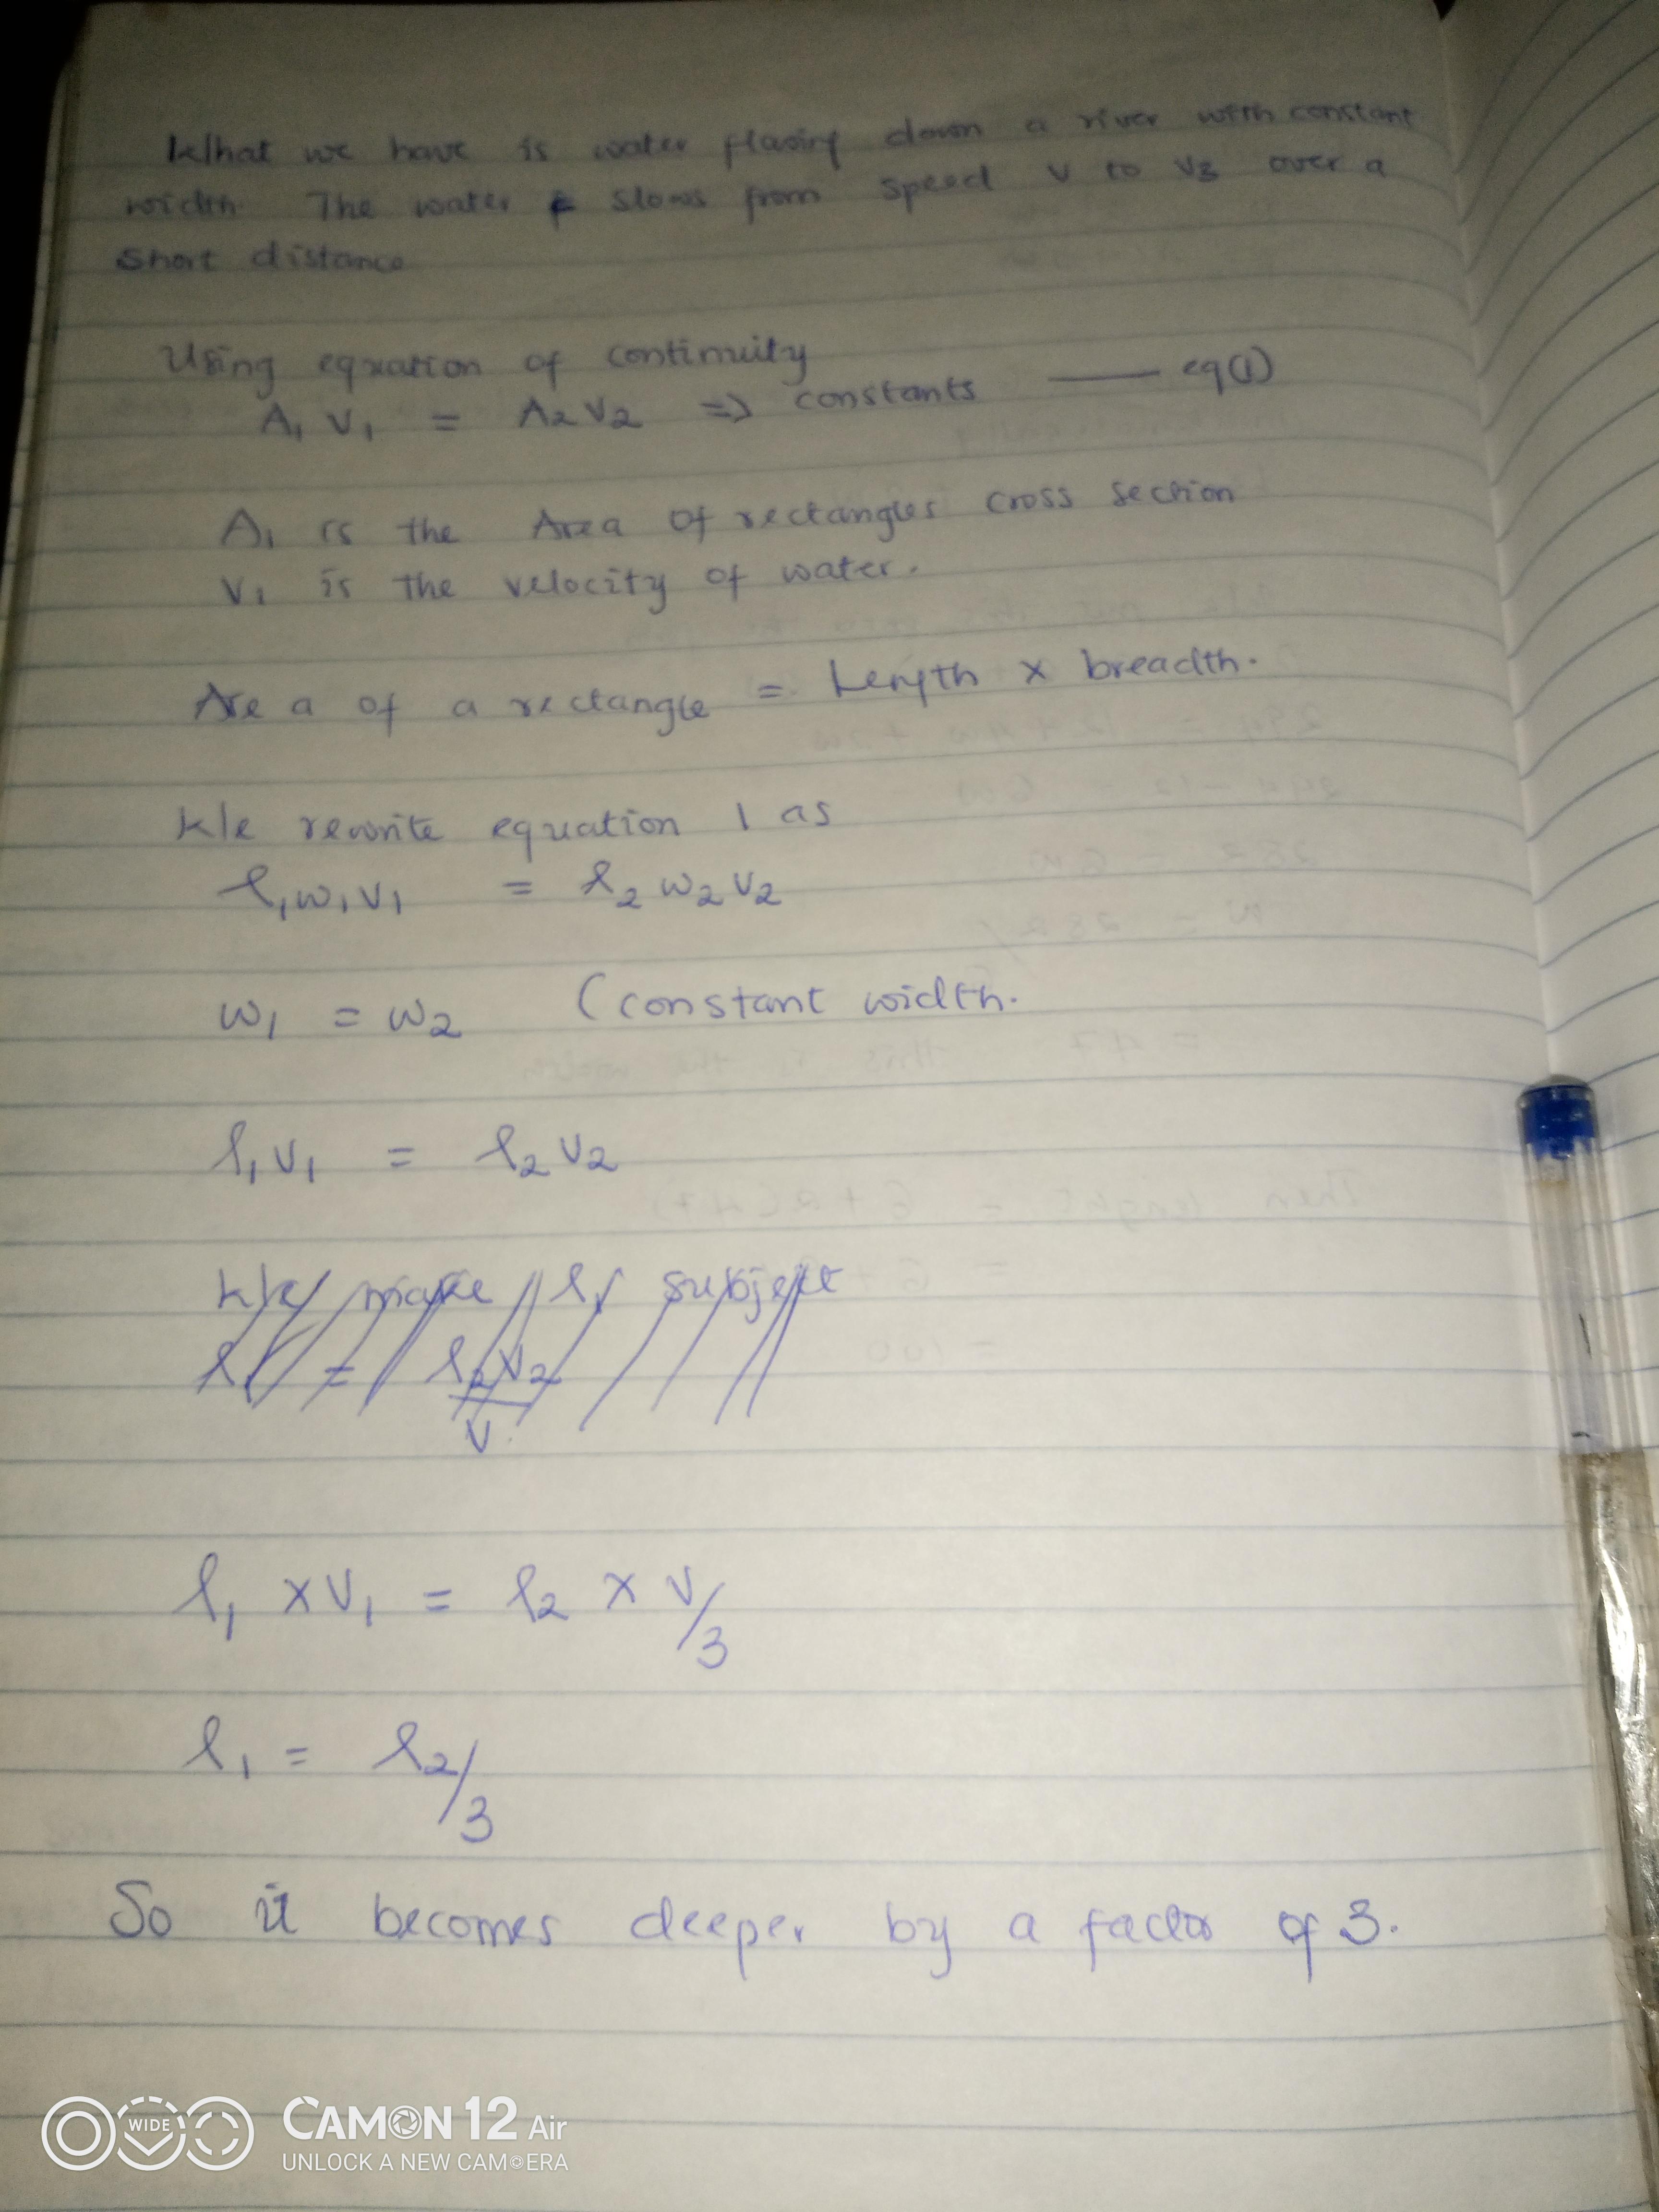 What we have is water flowing down a river with constant
width. The water slows from speed v to v3 over a
short distance
Using equation of continuity
A1 V1 = A2 V2 => constants —— eq(1)
A1 is the Area of rectangles cross section
V1 is the velocity of water.
Area of a rectangle = Length x breadth.
We rewrite equation 1 as
l1w1v1 = l2 w2 v2
w1 = w2 (constant width.
l1v1 = l2 v2
We make l1 subject
l1 = l2v2/v
l1 x v1 = l2 x v/3
l1 = l2/3
So it becomes deeper by a factor of 3.
WIDE
CAMON 12 Air
UNLOCK A NEW CAMERA